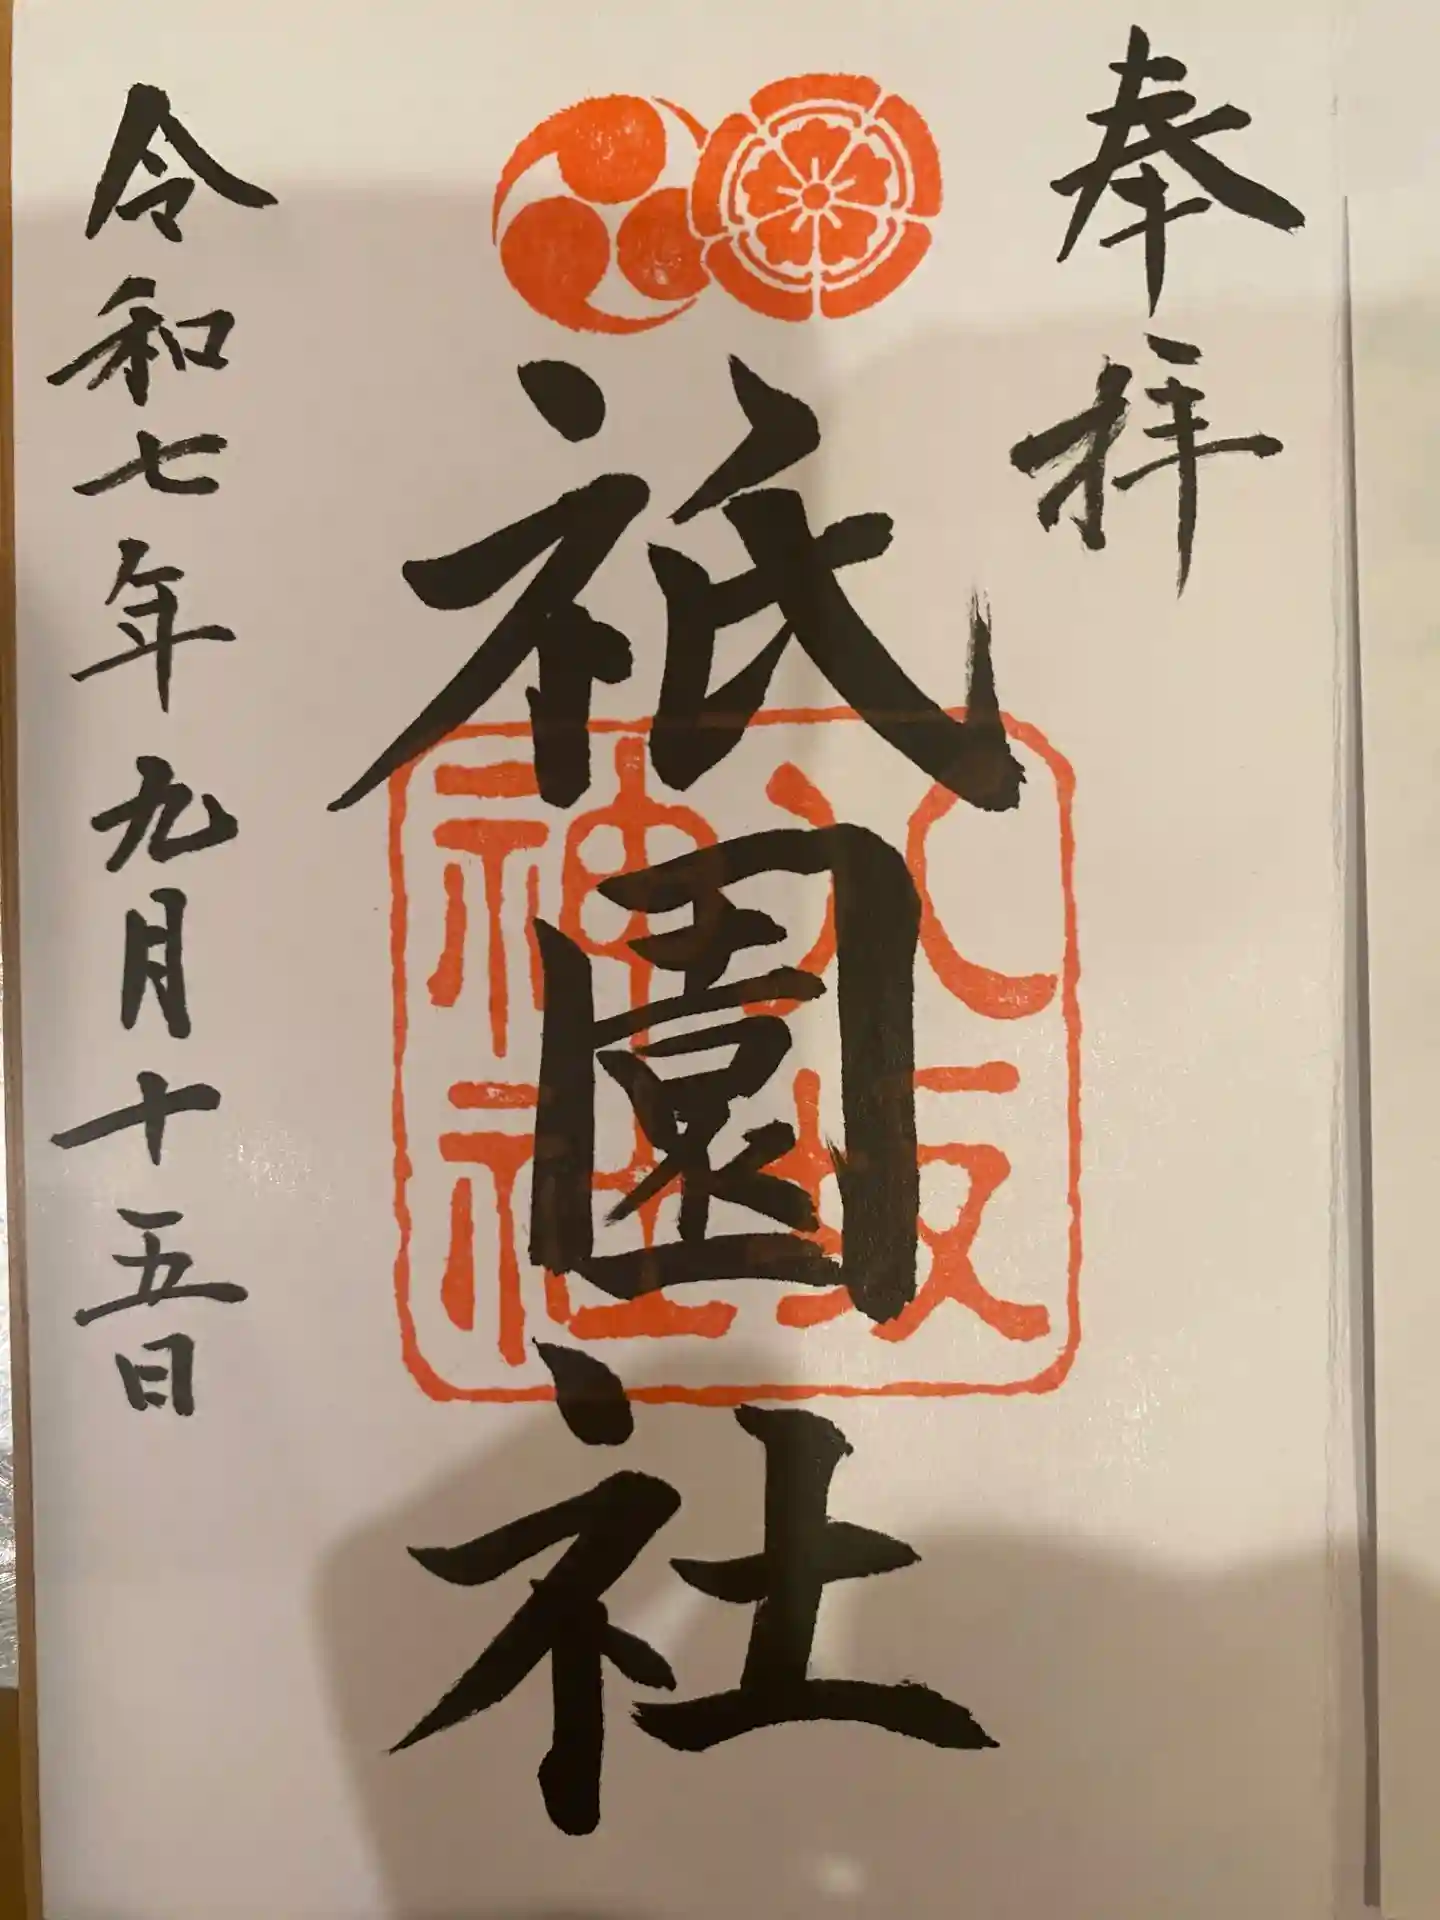 奉拝
祇園社
八坂神社
令和七年九月十五日